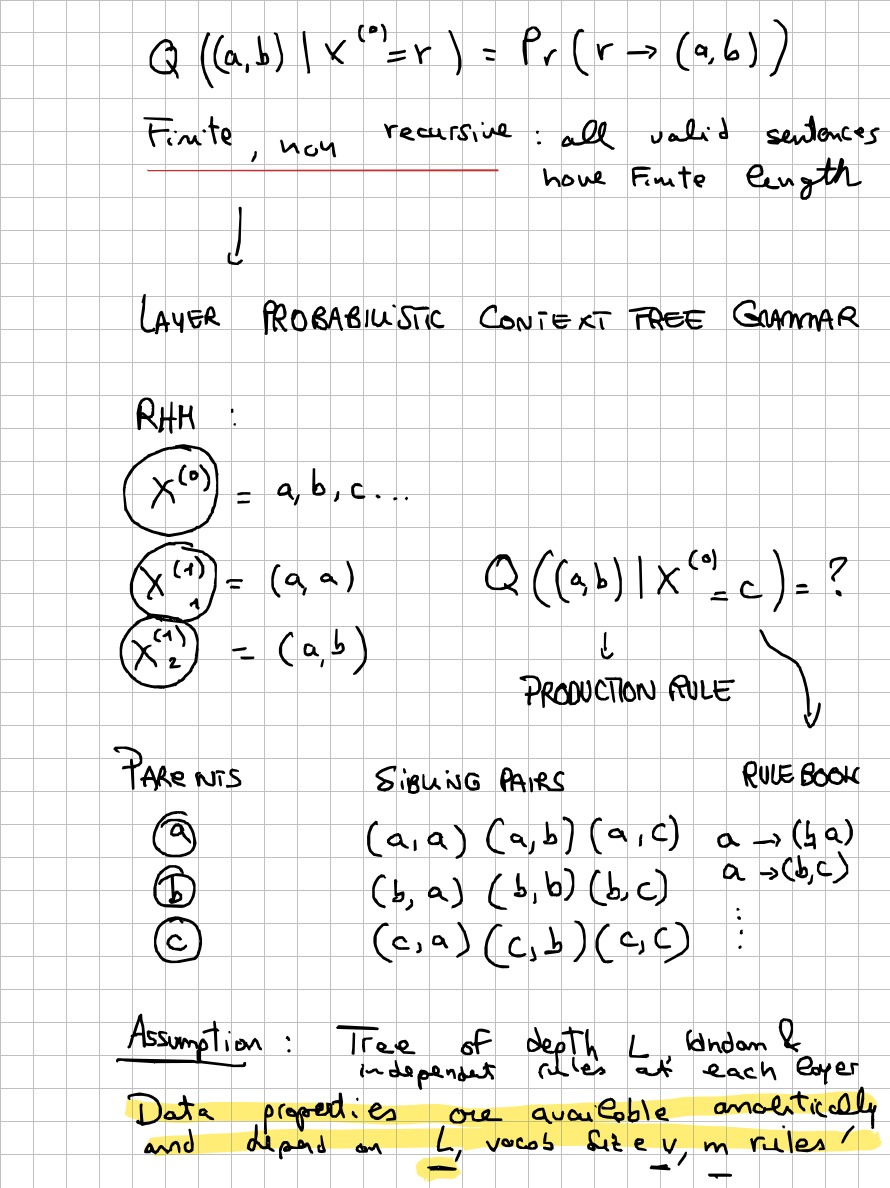 Q ((a,b) | X^(0) = r ) = Pr ( r → (a,b) )
Finite, non recursive : all valid sentences
have Finite length
↓
LAYER PROBABILISTIC CONTEXT FREE GRAMMAR
RHM :
X^(0) = a, b, c...
X^(1)_1 = (a, a)
Q ((a,b) | X^(0) = c ) = ?
X^(1)_2 = (a, b)
↓
PRODUCTION RULE
PARENTS SIBLING PAIRS RULE BOOK
a (a, a) (a, b) (a, c) a → (b, a)
a → (b, c)
b (b, a) (b, b) (b, c)
c (c, a) (c, b) (c, c) ⋮
Assumption : Tree of depth L, random &
independent rules at each layer
Data properties are available analitically
and depend on L, vocab size v, m rules !